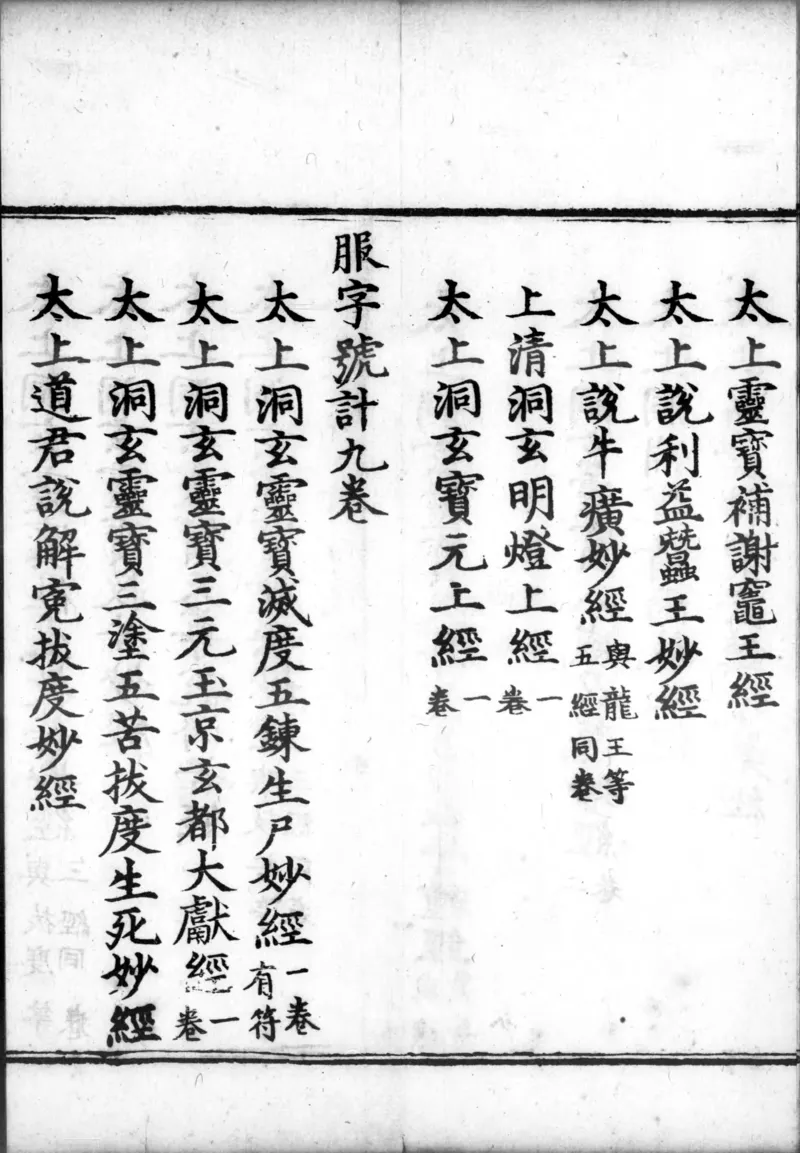 太上靈寶補謝竈王經
太上說利益蠶王妙經
太上說牛癀妙經與龍王等五經同卷
上清洞玄明燈上經一卷
太上洞玄寶元上經一卷
服字號計九卷
太上洞玄靈寶滅度五鍊生尸妙經一卷有符
太上洞玄靈寶三元玉京玄都大獻經一卷
太上洞玄靈寶三塗五苦拔度生死妙經
太上道君說解冤拔度妙經